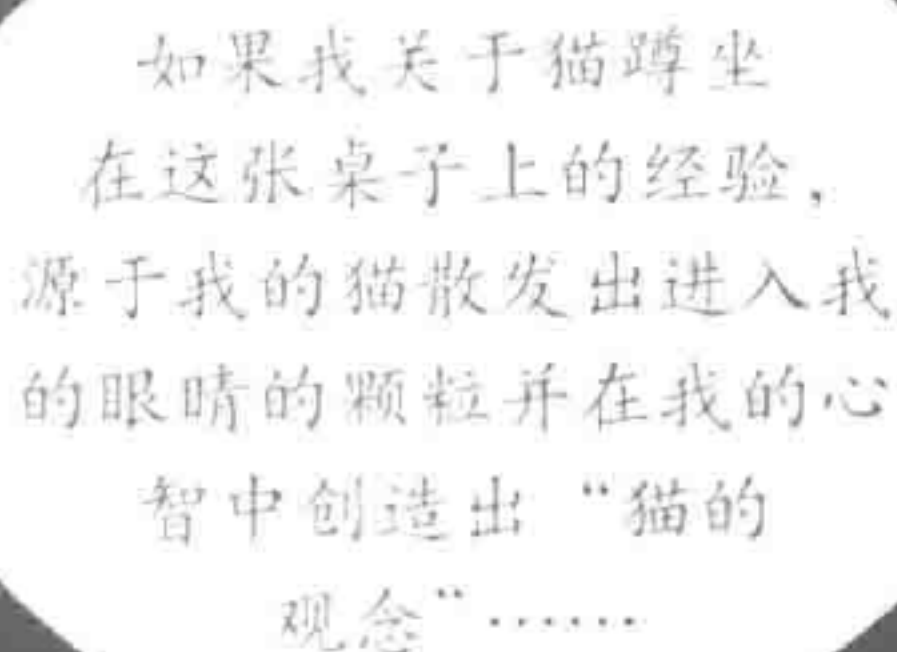 如果我关于猫蹲坐
在这张桌子上的经验，
源于我的猫散发出进入我
的眼睛的颗粒并在我的心
智中创造出“猫的
观念”……